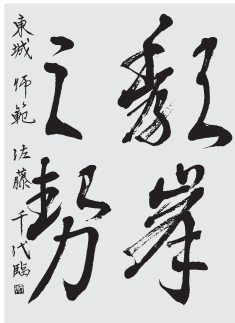 頽峯
之勢
東城 師範 佐藤 千代臨